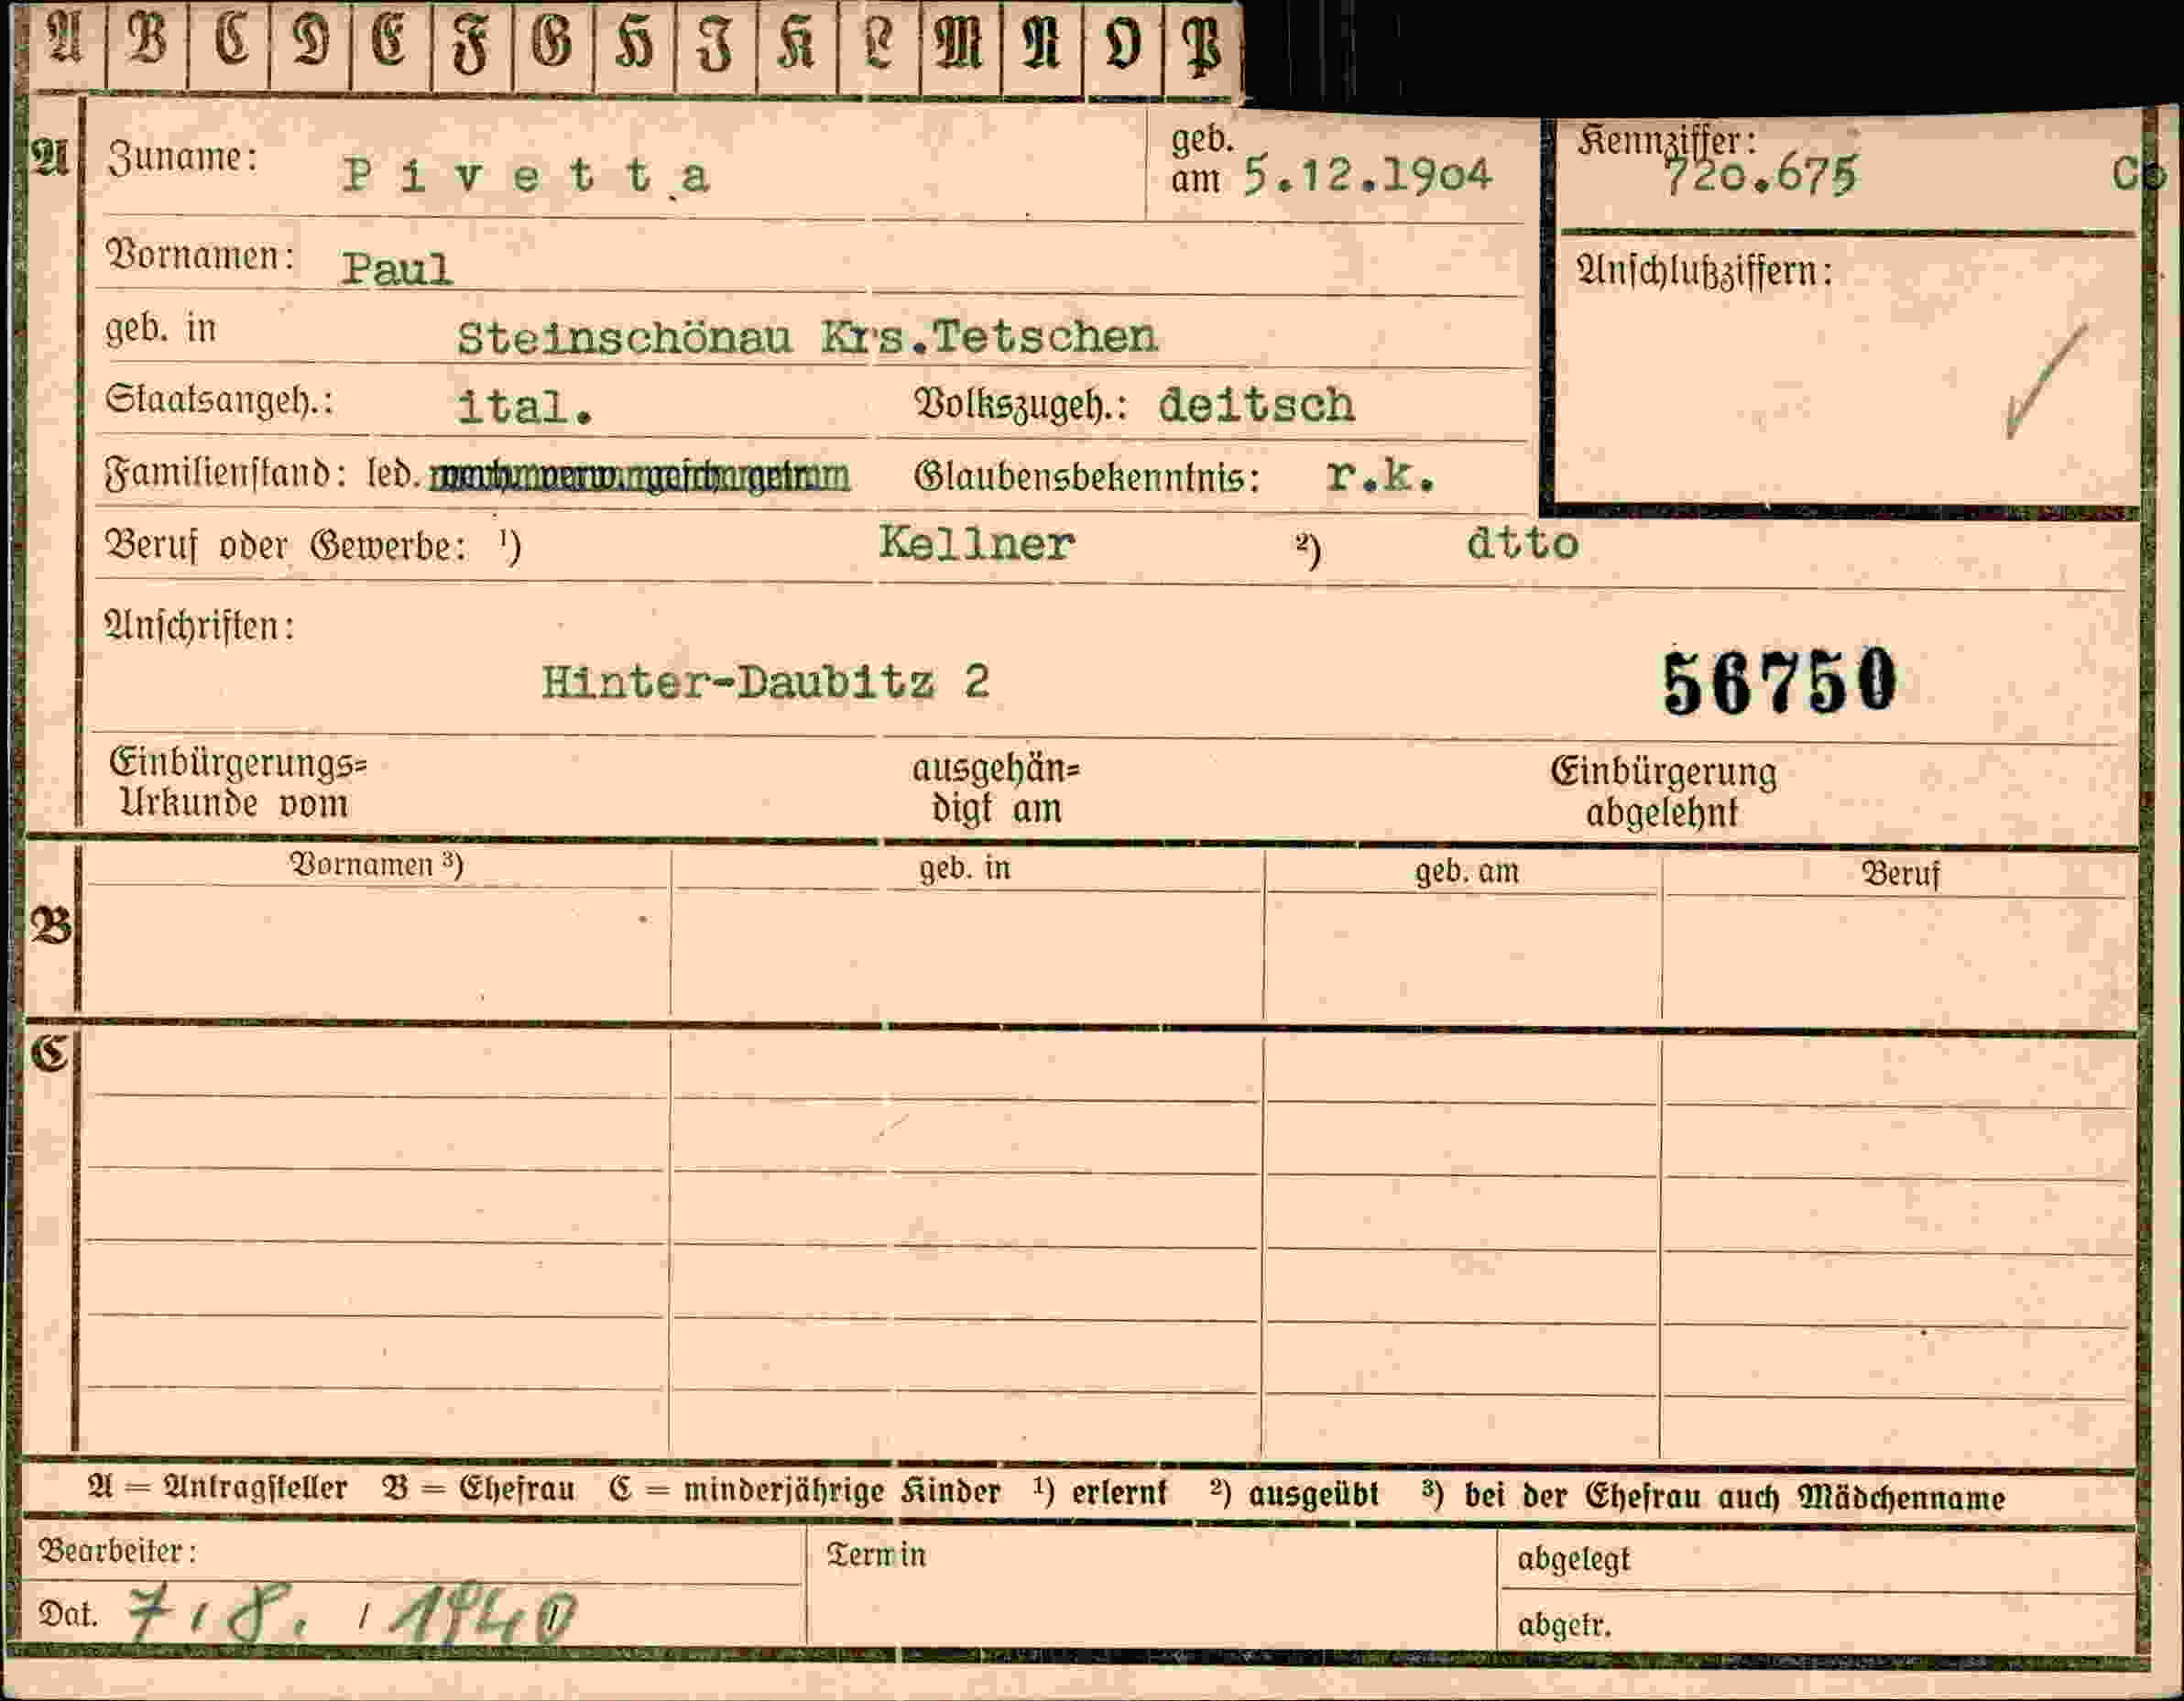 A B C D E F G H I K L M N O P
A Zuname: Pivetta geb. am 5.12.1904 Kennziffer: 720.675 Co
Vornamen: Paul Anschlußziffern:
geb. in Steinschönau Krs.Tetschen
Staatsangeh.: ital. Volkszugeh.: deitsch
Familienstand: led. Glaubensbekenntnis: r.k.
Beruf oder Gewerbe: ¹) Kellner ²) dtto
Anschriften:
Hinter-Daubitz 2 56750
Einbürgerungs= ausgehän= Einbürgerung
Urkunde vom digt am abgelehnt
B Vornamen ³) geb. in geb. am Beruf
C
A = Antragsteller B = Ehefrau C = minderjährige Kinder ¹) erlernt ²) ausgeübt ³) bei der Ehefrau auch Mädchenname
Bearbeiter: Termin abgelegt
Dat. 7/8. / 1940 abgetr.